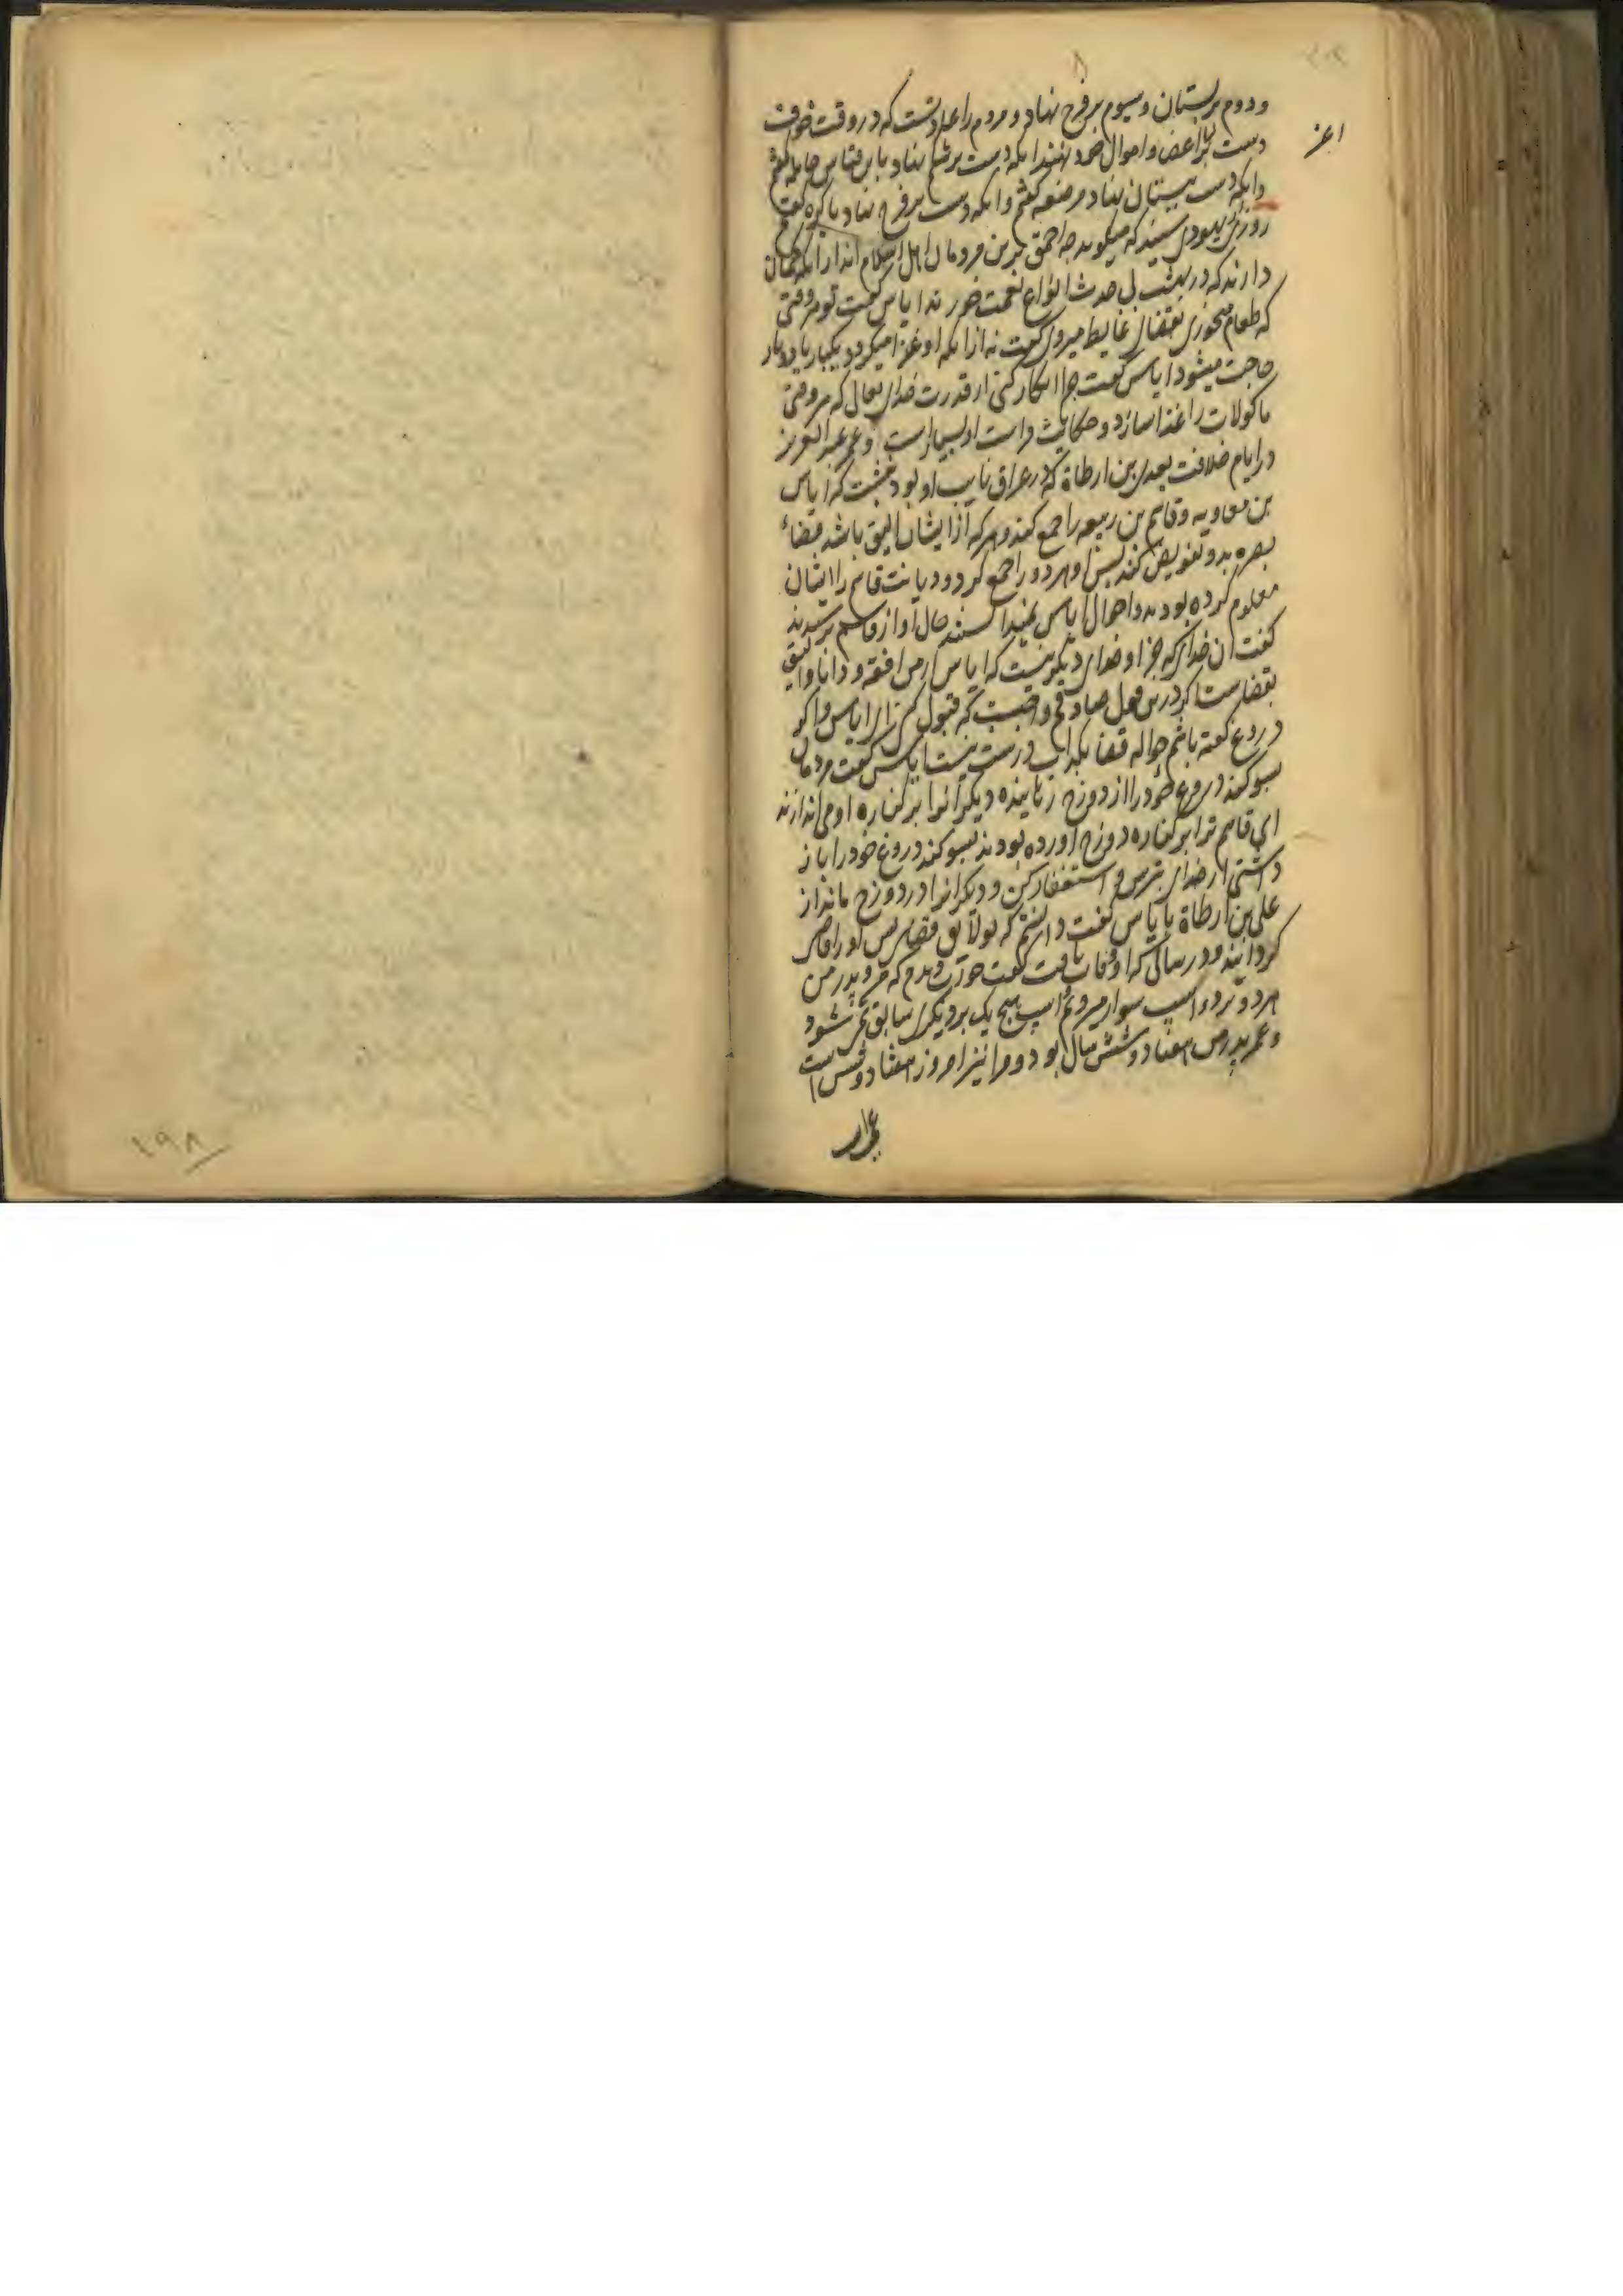 ودوم بر پستان وسیوم بر فرج نهاد و مردم را عادتست که در وقت خوف
دست بر اعز اعضا و اموال خود نهند انکه دست بر شکم نهاد باین قیاس حامله گفتم
وانکه دست بپستان نهاد مرضعه گفتم وانکه دست بر فرج نهاد باکره گفتم
روزی یهودی شنید که میگوید چه احمق ترین مردمان اهل اسلام اند ازانکه گمان
دارند که در بهشت بی حدث انواع نعمت خورند ایاس گفت تو هر وقتی
که طعام میخوری بقضای غایط میروی گفت نه ازانکه او غذا میگردد یکبار یا دوبار
حاجت میشود ایاس گفت چرا انکار کنی از قدرت خدای تعالی که هر وقتی
ماکولات را غذا سازد و حکایت فراست او بسیار است و عمر عبدالعزیز
در ایام خلافت بعدی بن ارطاة که در عراق نایب او بود نبشت که ایاس
بن معاویه و قاسم بن ربیعه را جمع کند و هر که از ایشان الیق باشد قضاء
بصره بدو تفویض کند پس او هر دو را جمع کرد و دیانت قاسم را ایشان
معلوم کرده بودند و احوال ایاس نمیدانستند حال او از قاسم پرسیدند
گفت ان خدای که جز او خدای دیگر نیست که ایاس از من افقه و دانا و الیق
بقضاست اگر درین قول صادقم واجبست که قبول کنی قول مرا و اگر
دروغ گفته باشم حواله قضا بکذاب درست نیست ایاس گفت مردمان
بسوگند دروغ خود را از دوزخ رهانیده دیگرانرا بر کناره او می اندازند
ای قاسم ترا بر کناره دوزخ آورده بودند بسوگند دروغ خود را باز
داشتی از خدای بترس و استغفار کن و دیگرانرا در دوزخ مانداز
علی بن ارطاة با ایاس گفت دانستم که تو لایق قضای پس او را قاضی
گردانید و در سالی که او وفات یافت گفت خواب دیدم که من و پدر من
هر دو بر دو اسب سوار میرویم اسپ هیچ یک بر دیگری سابق نمی شود
و عمر پدر من هفتاد و شش سال بود و مرا نیز امروز هفتاد و شش است
اعز
۱۹۸